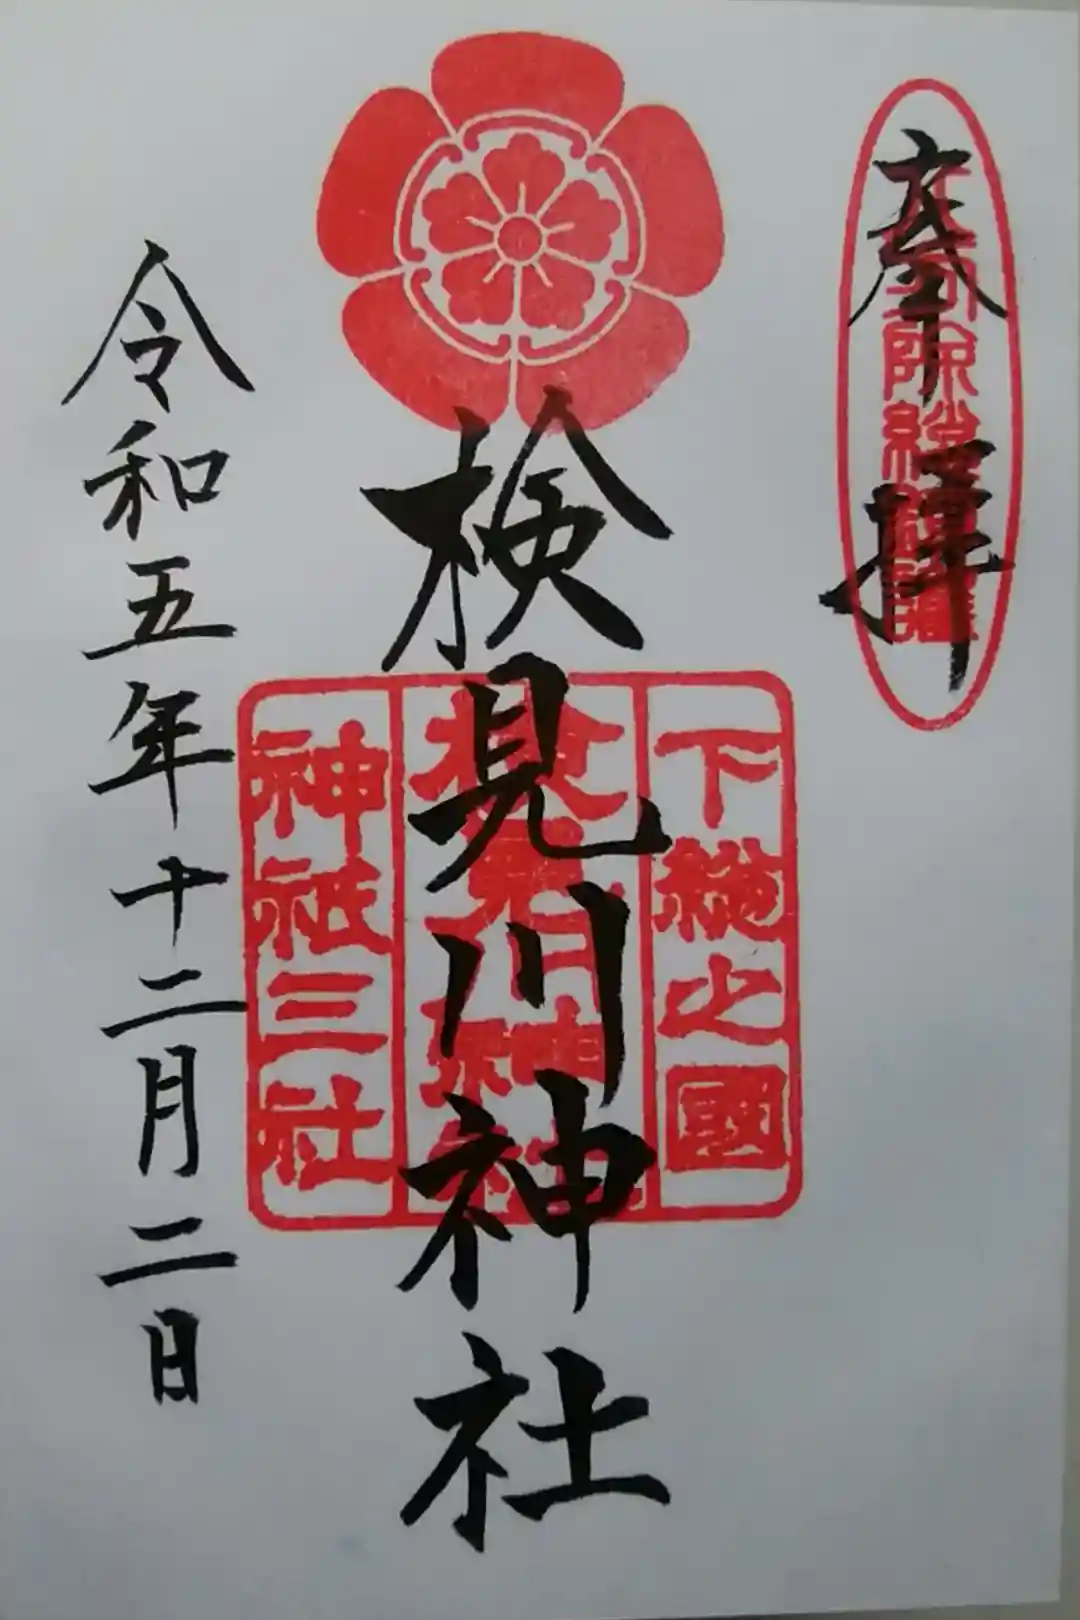 奉拝
八方除総鎮護
検見川神社
下総之國
検見川神社
神祇三社
令和五年十二月二日